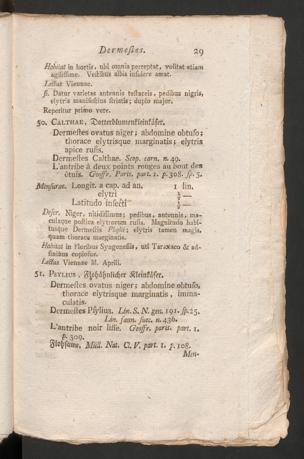 Dermestes. 29
Habitat in hortis, ubi omnia perreptat, volitat etiam
agilissime. Vestibus albis insidere amat.
Lectus Viennae.
β. Datur varietas antennis testaceis, pedibus nigris,
elytris manifestius striatis; duplo major.
Reperitur primo vere.
50. CALTHAE, Dotterblumenkleinkäfer.
Dermestes ovatus niger; abdomine obtuso;
thorace elytrisque marginatis; elytris
apice rufis.
Dermestes Calthae. Scop. carn. n. 49.
L'antribe à deux points rouges au bout des
étuis. Geoffr. Paris. part. 1. p. 308. sp. 3.
Mensurae. Longit. a cap. ad an. 1 lin.
elytri —
Latitudo insecti —
Descr. Niger, nitidissimus; pedibus, antennis, ma-
culaque postica elytrorum rufis. Magnitudo habi-
tusque Dermestis; elytris tamen magis,
quam thorace marginatis.
Habitat in floribus Syngenesiis, uti Taraxaco & ad-
finibus copiosus.
Lectus Viennae M. Aprili.
51. PSYLIUS, Flohähnlicher Kleinkäfer.
Dermestes ovatus niger; abdomine obtuso,
thorace elytrisque marginatis, imma-
culatis.
Dermestes Psylius. Lin. S. N. gen. 191. sp. 25.
Lin. faun. suec. n. 436.
L'antribe noir lisse. Geoffr. paris. part. 1.
p. 309.
Flohsame, Müll. Nat. C. V. part. 1. p. 108.
Men-